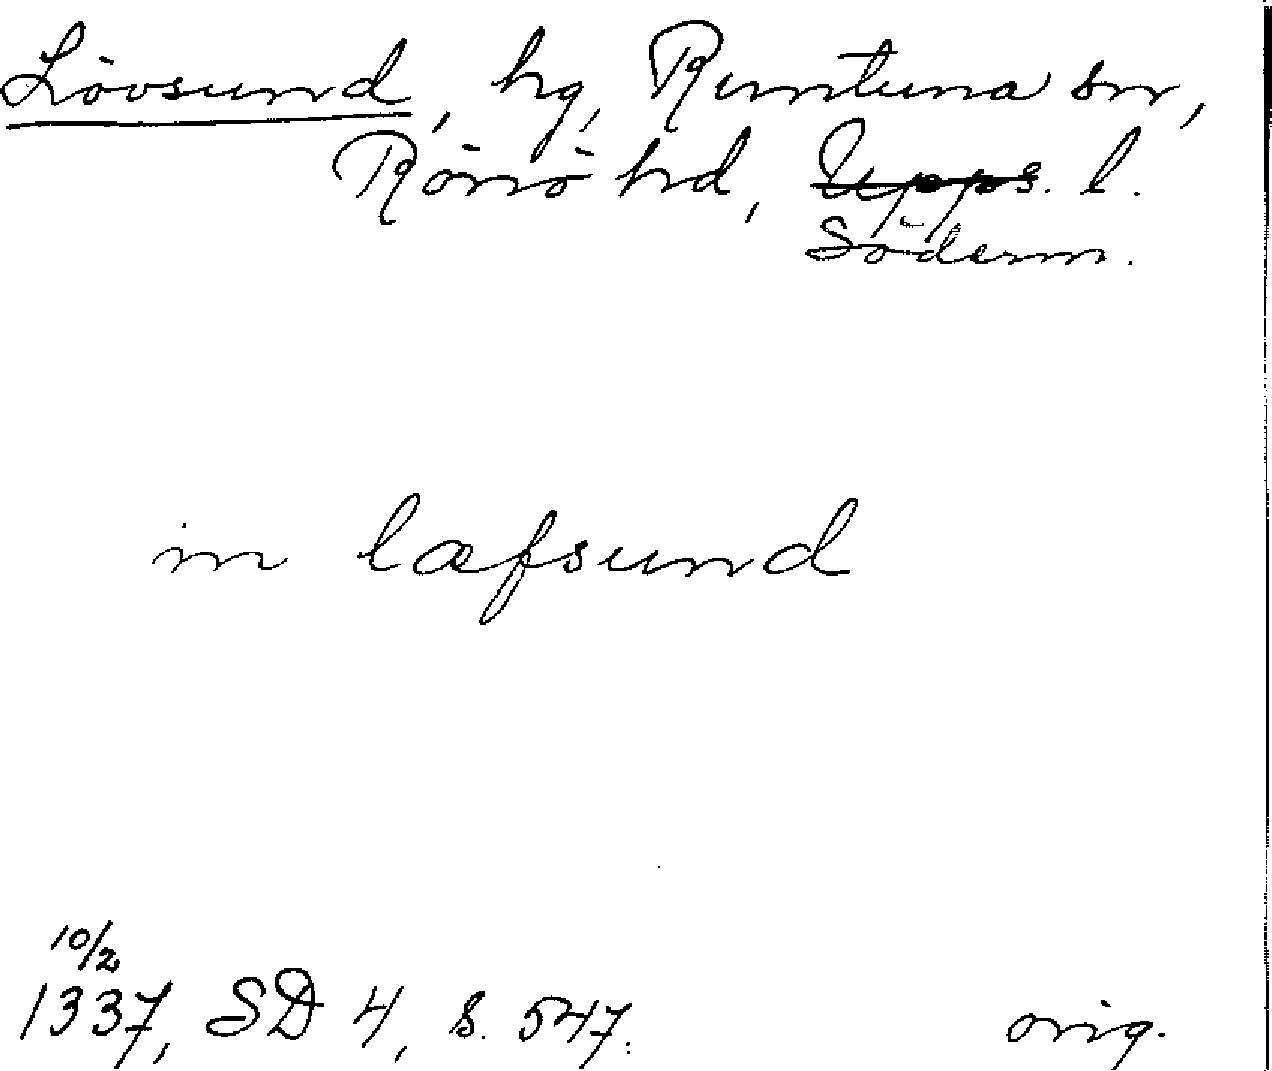 Lövsund, hg, Runtuna sn,
Rönö hd, Upps. l.
Söderm.
in læfsund
10/2
1337, SD 4, s. 547.
orig.